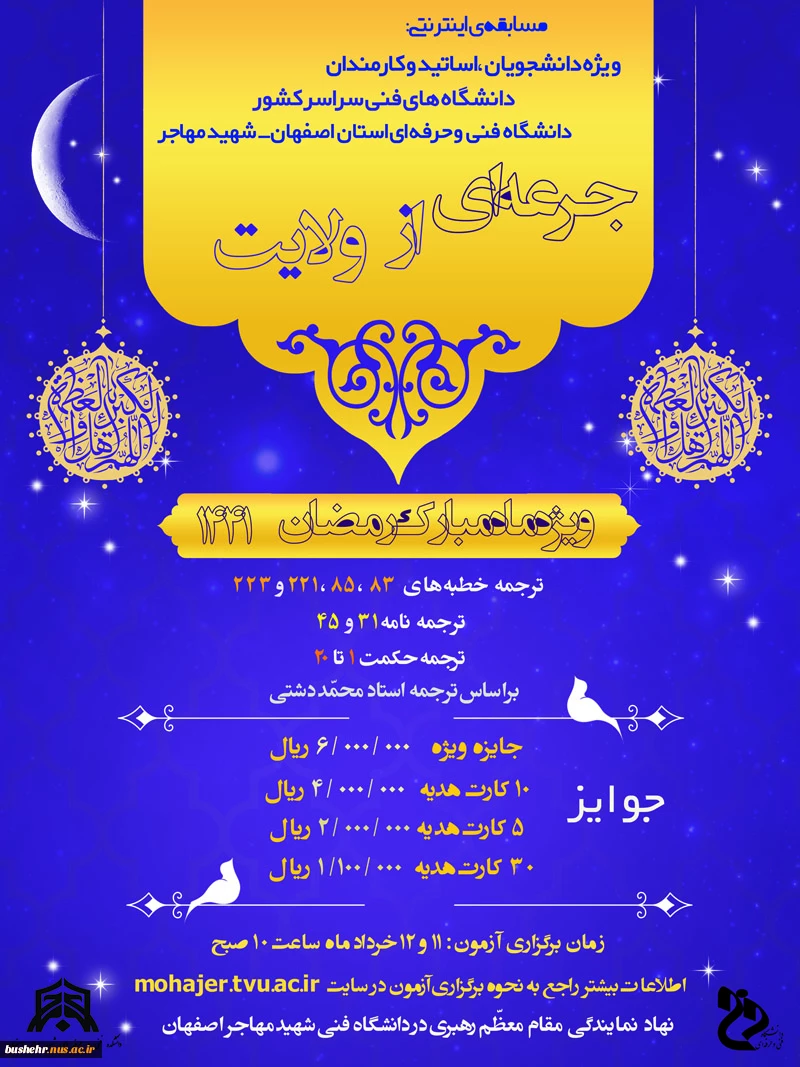 مسابقه‌ی اینترنتی:
ویژه دانشجویان ،اساتید و کارمندان
دانشگاه های فنی سراسر کشور
دانشگاه فنی و حرفه ای استان اصفهان_ شهید مهاجر
جرعه‌ای از ولایت
اللهم اهل الکبریاء والعظمة
اللهم اهل الکبریاء والعظمة
ویژه ماه مبارک رمضان ۱۴۴۱
ترجمه خطبه های ۸۳ ،۸۵ ،۲۲۱ و ۲۲۳
ترجمه نامه ۳۱ و ۴۵
ترجمه حکمت ۱ تا ۲۰
براساس ترجمه استاد محمّد دشتی
جوایز
جایزه ویژه ۶/۰۰۰/۰۰۰ ریال
۱۰ کارت هدیه ۴/۰۰۰/۰۰۰ ریال
۵ کارت هدیه ۲/۰۰۰/۰۰۰ ریال
۳۰ کارت هدیه ۱/۱۰۰/۰۰۰ ریال
زمان برگزاری آزمون : ۱۱ و ۱۲ خرداد ماه ساعت ۱۰ صبح
اطلاعات بیشتر راجع به نحوه برگزاری آزمون در سایت mohajer.tvu.ac.ir
نهاد نمایندگی مقام معظّم رهبری در دانشگاه فنی شهید مهاجر اصفهان
bushehr.nus.ac.ir